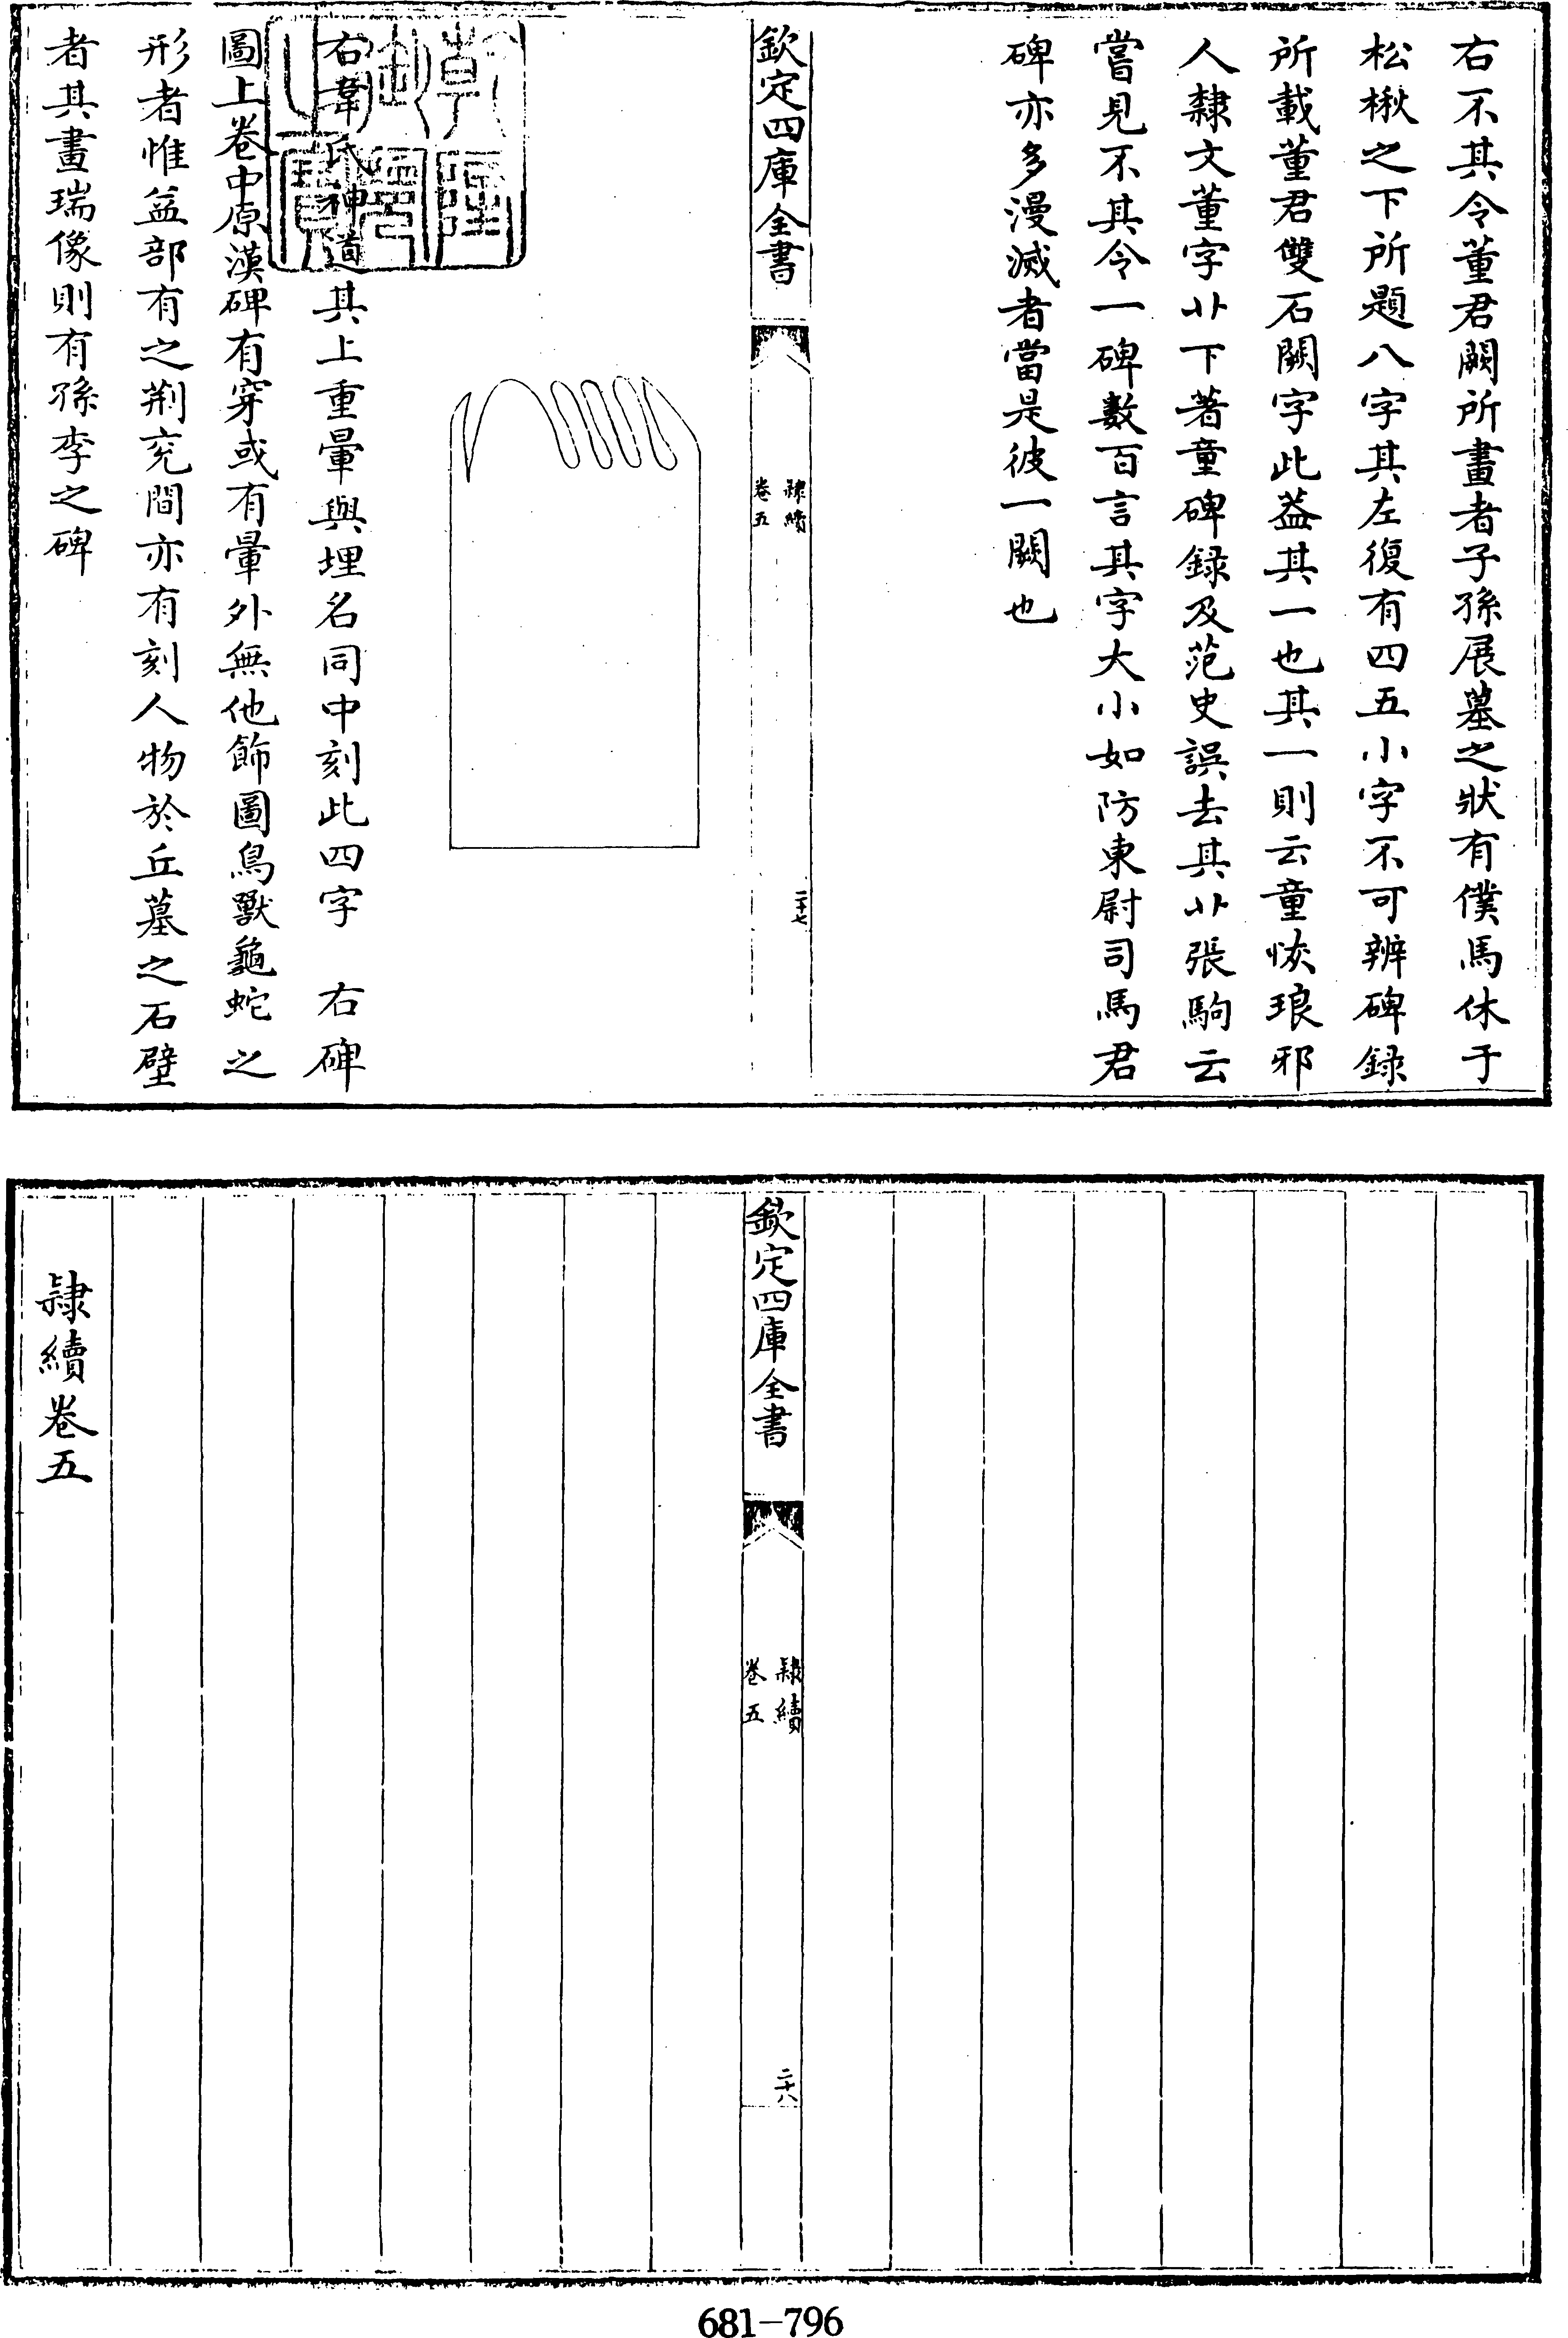 右不其令董君闕所畫者子孫展墓之狀有僕馬休于
松楸之下所題八字其左復有四五小字不可辨碑録
所載董君雙石闕字此葢其一也其一則云童恢琅邪
人隸文董字艸下著童碑録及范史誤去其艸張駒云
嘗見不其令一碑數百言其字大小如防東尉司馬君
碑亦多漫滅者當是彼一闕也
欽定四庫全書
隸續
卷五
二十七
右韋氏神道其上重暈與埋名同中刻此四字　右碑
圖上卷中原漢碑有穿或有暈外無他飾圖鳥獸龜蛇之
形者惟益部有之荆兖間亦有刻人物於丘墓之石壁
者其畫瑞像則有孫李之碑
乾隆御覽之寶
欽定四庫全書
隸續
卷五
二十八
隸續卷五
681-796